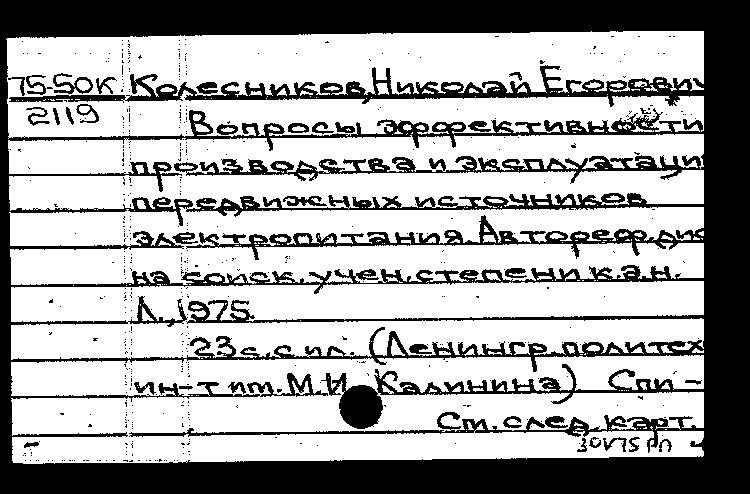 75-50К Колесников, Николай Егорович
2119 Вопросы эффективности
производства и эксплуатации
передвижных источников
электропитания. Автореф. дис
на соиск. учен. степени к.э.н.
Л., 1975.
23 с. с ил. (Ленингр. политех
ин-т им. М.И. Калинина) Спи-
См. след. карт.
30V75 РП